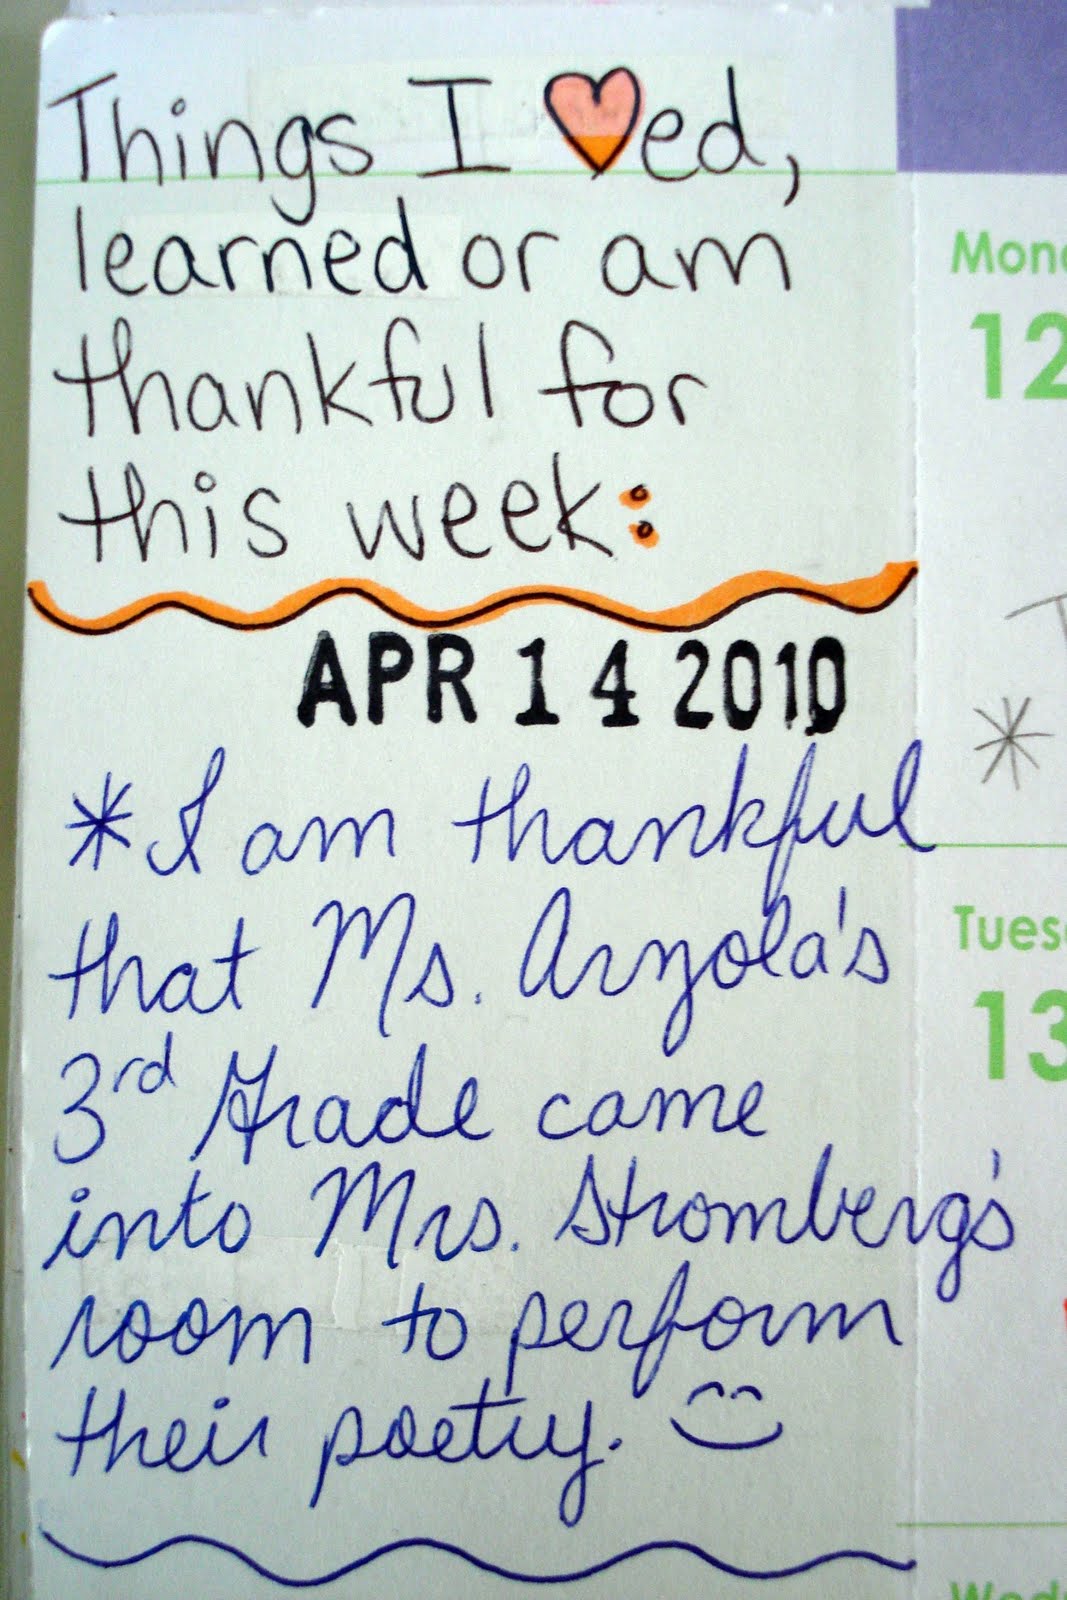 Things I ♥ed,
learned or am
thankful for
this week:
APR 14 2010
*I am thankful
that Ms. Arzola's
3rd Grade came
into Mrs. Stromberg's
room to perform
their poetry.
12
13